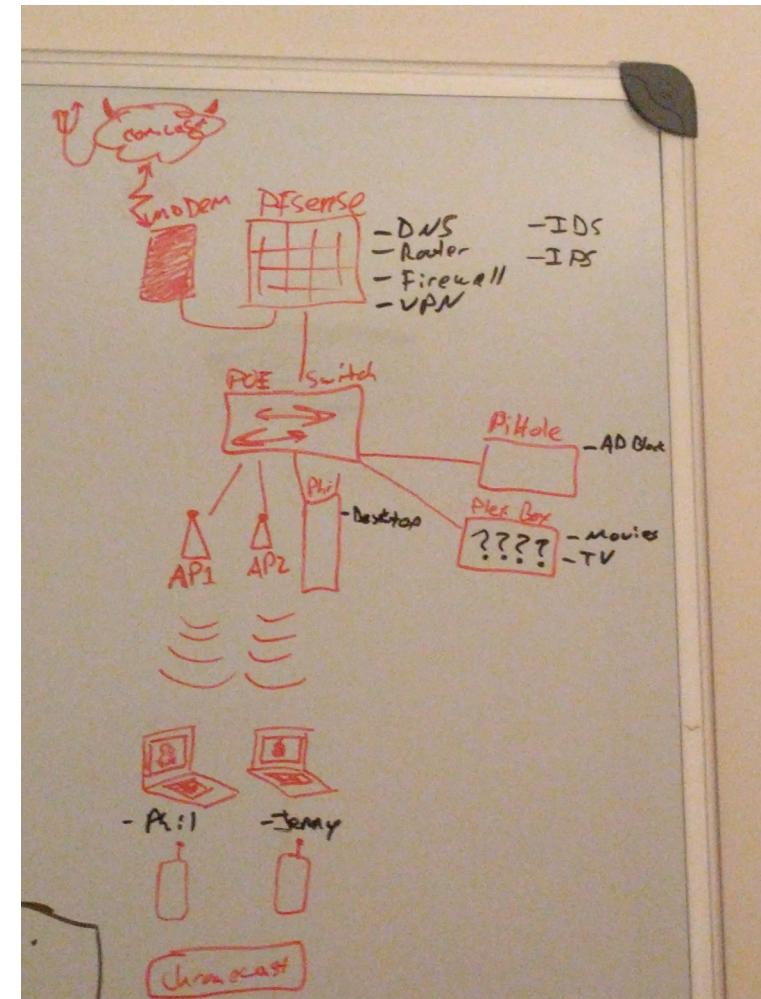 comcast
modem
Pfsense
- DNS
- Router
- Firewall
- VPN
- IDS
- IPS
POE Switch
PiHole
- AD Block
Phil
- Desktop
Plex Box
????
- Movies
- TV
AP1
AP2
- Phil
- Jenny
chromecast